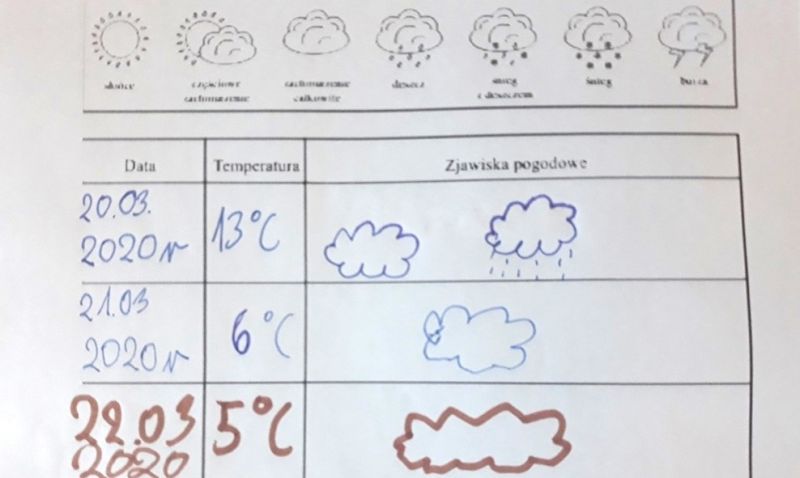 słońce
częściowe
zachmurzenie
zachmurzenie
całkowite
deszcz
śnieg
z deszczem
śnieg
burza
Data
Temperatura
Zjawiska pogodowe
20.03.
2020r
13°C
21.03
2020r
6°C
22.03
2020
5°C